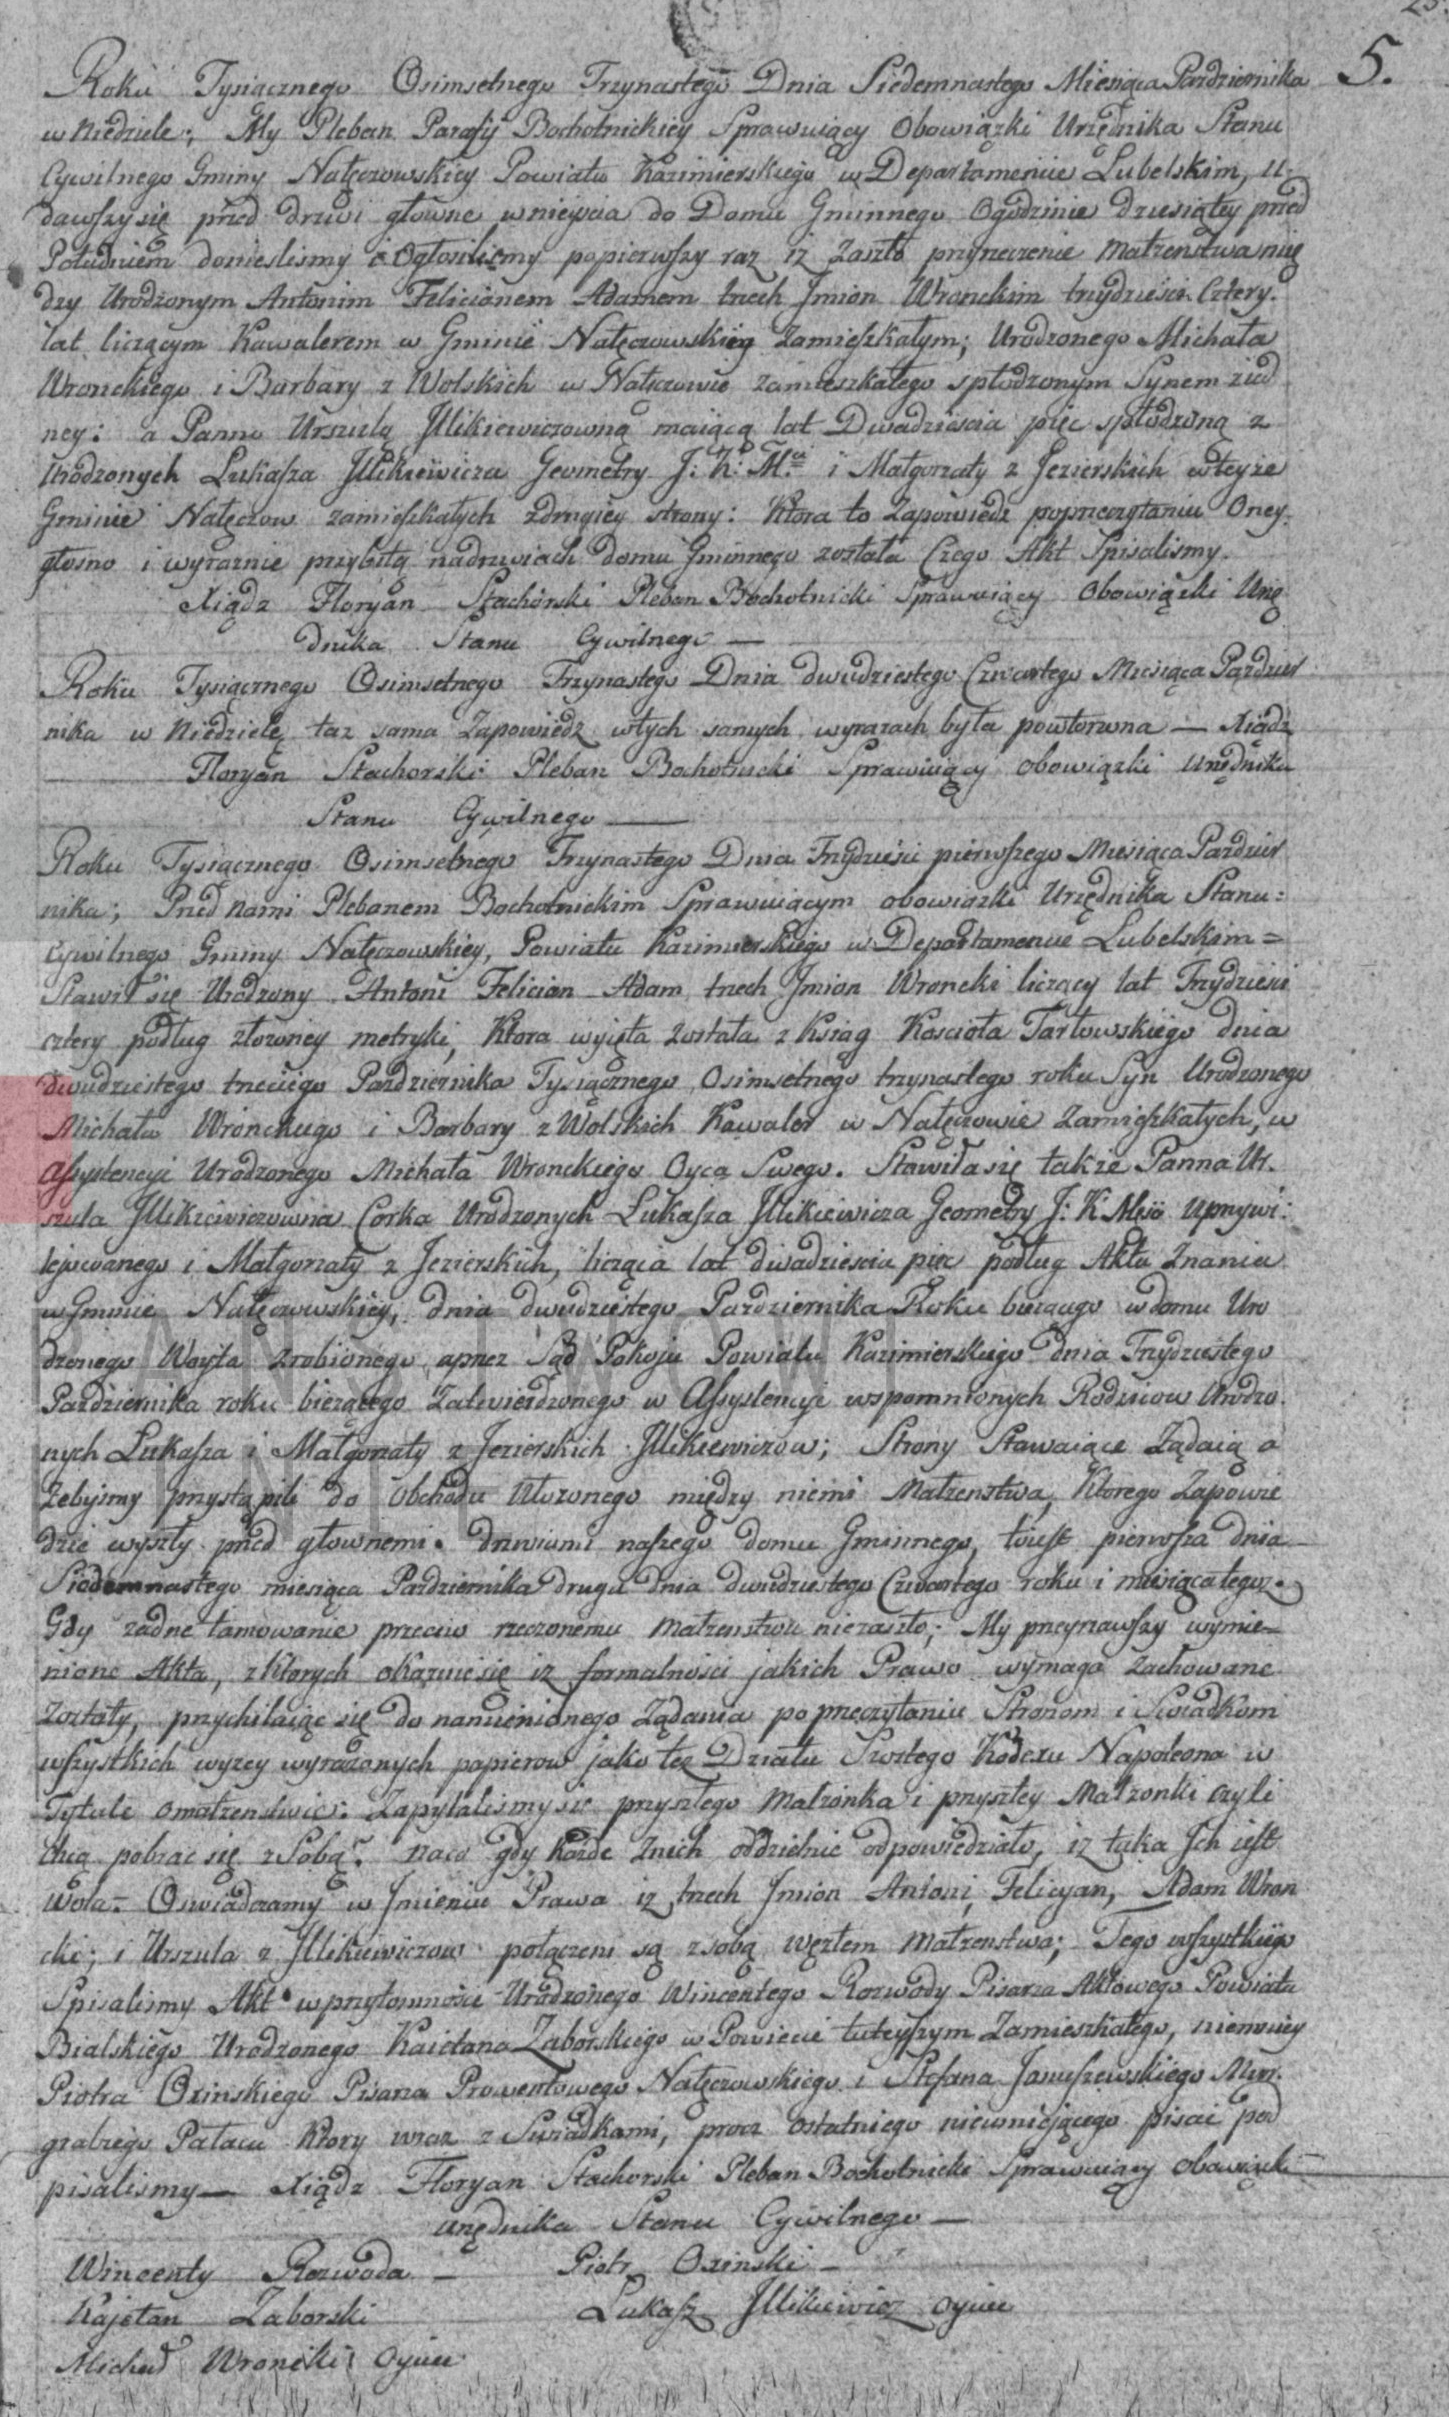 5.
Roku Tysiącznego Osimsetnego Trzynastego Dnia Siedemnastego Miesiąca Pazdziernika
w Niedziele; My Pleban Parafij Bochotnickiey Sprawuiący Obowiązki Urzędnika Stanu
Cywilnego Gminy Nałęczowskiey Powiatu Kazimierskiego w Departamencie Lubelskim, u-
dawszy się przed drzwi głowne wnieyscia do Domu Gminnego Ogodzinie dziesiątey przed
Południem donieslismy i Ogłosilismy popierwszy raz iz zaszło przyrzeczenie Małzenstwa mię
dzy Urodzonym Antonim Felicianem Adamem trzech Jmion Wronckim trzydzieści Cztery
lat liczącym Kawalerem w Gminie Nałęczowskiey Zamieszkałym; Urodzonego Michała
Wronckiego i Barbary z Wolskich w Nałęczowie zamieszkałego spłodzonym Synem z ied
ney: a Panne Urszulą Jllikiewiczowną maiącą lat Dwadziescia pięc spłodzoną z
Urodzonych Lukasza Jllikiewicza Geometry J: K: M: i Małgorzaty z Jezierskich wteyze
Gminie Nałęczow zamieszkałych zdrugiey strony: Ktora to Zapowiedz poprzeczytaniu Oney
głosno i wyraznie przybitą nadrzwiach domu Gminnego została Czego Akt Spisalismy.
Xiądz Floryan Stachorski Pleban Bochotnicki Sprawuiący Obowiązki Urzę
dnika Stanu Cywilnego —
Roku Tysiącznego Osimsetnego Trzynastego Dnia dwudziestego Czwartego Miesiąca Pazdzier
nika w Niedzielę taz sama Zapowiedz wtych samych wyrazach była powtorzona — Xiądz
Floryan Stachorski Pleban Bochotnicki Sprawuiący obowiązki Urzędnika
Stanu Cywilnego —
Roku Tysiącznego Osimsetnego Trzynastego Dnia Trzydziesci pierwszego Miesiąca Pazdzier
nika; Przed nami Plebanem Bochotnickim Sprawuiącym obowiazki Urzędnika Stanu:
Cywilnego Gminy Nałęczowskiey, Powiatu Kazimierskiego w Departamencie Lubelskim =
Stawił się Urodzony Antoni Felician Adam trzech Jmion Wroncki liczący lat Trzydziesci
cztery podług złozoney metryki, Ktora wyięta została z Ksiąg Koscioła Tarłowskiego dnia
dwudziestego trzeciego Pazdziernika Tysiącznego Osimsetnego trzynastego roku Syn Urodzonego
Michała Wronckiego i Barbary z Wolskich Kawaler w Nałęczowie Zamieszkałych, w
Assystencyi Urodzonego Michała Wronckiego Oyca Swego. Stawiła się takze Panna Ur.
szula Jllikiewiczowna Corka Urodzonych Lukasza Jllikiewicza Geometry J: K. Mci Uprzywi:
lejowanego i Małgorzaty z Jezierskich, licząca lat dwadziescia pięc podług Aktu Znania
w Gminie Nałęczowskiey, dnia dwudziestego Pazdziernika Roku bieżącego wdomu Uro
dzonego Woyta zrobionego, aprzez Sąd Pokoju Powiatu Kazimierskiego dnia Trzydziestego
Pazdziernika roku bieżącego Zatwierdzonego w Assystencyi wspomnionych Rodzicow Urodzo.
nych Lukasza i Małgorzaty z Jezierskich Jllikiewiczow; Strony Stawaiące Ządaią a
Zebysmy przystąpili do Obchodu Ułozonego między niemi Małzenstwa, Ktorego Zapowie
dzie wyszły przed głownemi drzwiami naszego domu Gminnego, toiest pierwsza dnia
Siedemnastego miesiąca Pazdziernika druga dnia dwudziestego Czwartego roku i miesiąca tegoz.
Gdy zadne tamowanie przeciw rzeczonemu Małzenstwu niezaszło; My przeyrzawszy wymie-
nione Akta, zktorych okazuie się iz formalności jakich Prawo wymaga zachowane
Zostały, przychilaiąc się do namienionego Ządania po przeczytaniu Stronom i Swiadkom
wszystkich wyzey wyrazonych papierow jako tez Działu Szostego Kodexu Napoleona w
Tytule omałzenstwie: Zapytalismy się przyszłego Małzonka i przyszłey Małzonki czyli
chcą pobrac się z Sobą? naco gdy kazde znich oddzielnie odpowiedziało, iz taka Jch iest
Wola= Oswiadczamy w Jmieniu Prawa iz trzech Jmion Antoni, Felicyan, Adam Wron
cki; i Urszula z Jllikiewiczow połączeni są zsobą węzłem Małzenstwa; Tego wszystkiego
Spisalismy Akt w przytomnosci Urodzonego Wincentego Rozwody Pisarza Aktowego Powiatu
Bialskiego Urodzonego Kaietana Zaborskiego w Powiecie tuteyszym Zamieszkałego, niemniey
Piotra Ozinskiego Pisarza Prowentowego Nałęczowskiego i Stefana Januszewskiego Mur.
grabiego Pałacu Ktory wraz z Swiadkami, procz ostatniego nieumiejącego pisac pod
pisalismy — Xiądz Floryan Stachorski Pleban Bochotnicki Sprawuiący Obowiązki
Urzędnika Stanu Cywilnego —
Wincenty Rozwoda — Piotr Ozinski —
Kajetan Zaborski Lukasz Jllikiewicz oyciec
Michał Wroncki oyciec